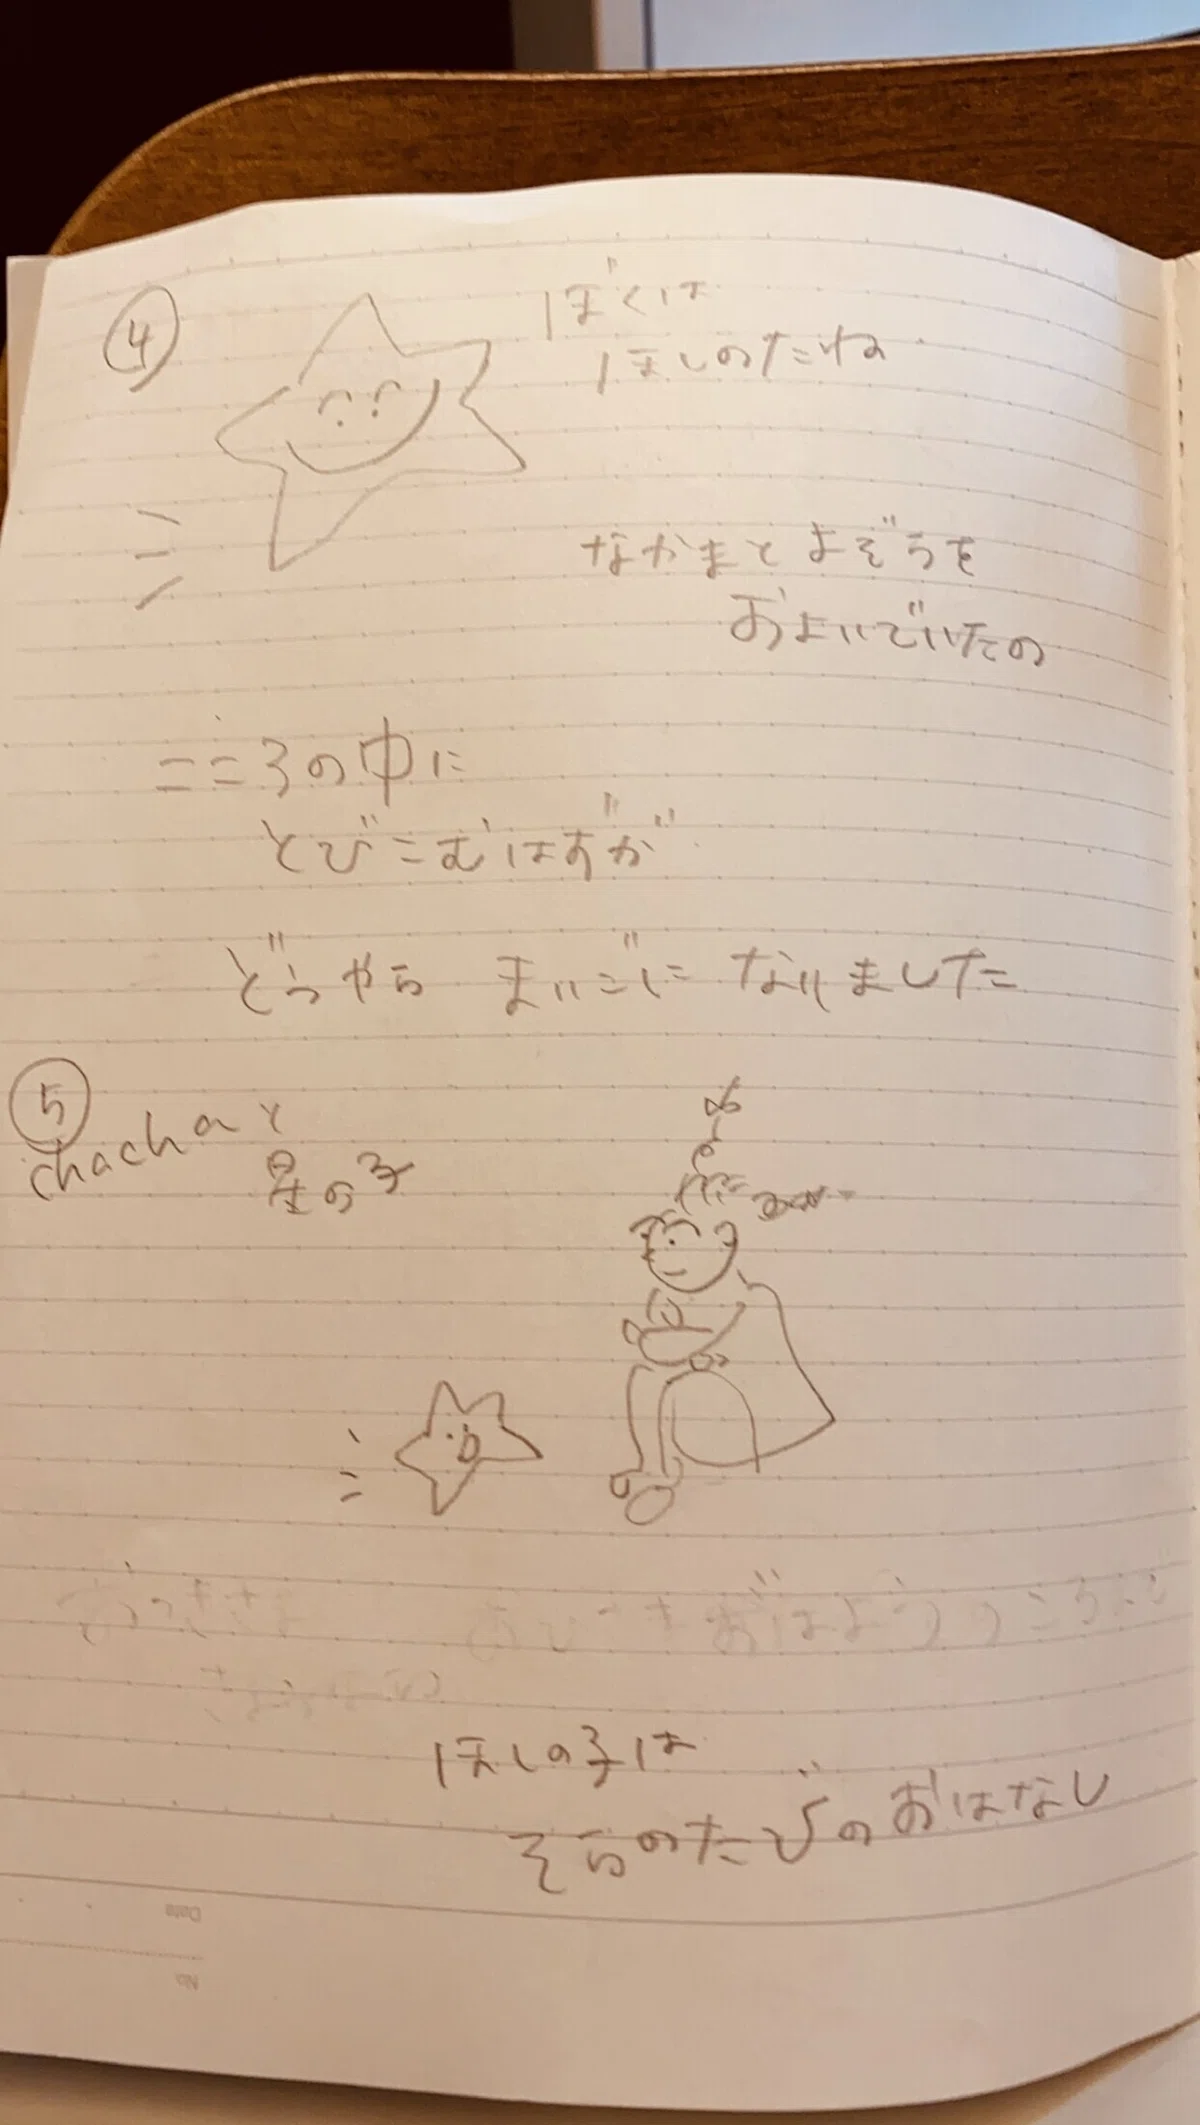 ④
ぼくは
ほしのたね
なかまと よぞうを
およいでいたの
こころの中に
とびこむはずが
どうやら まいごに なりました
⑤
chachaと
星の子
おはよう
ほしの子は
そらのたびの おはなし
Date
No.